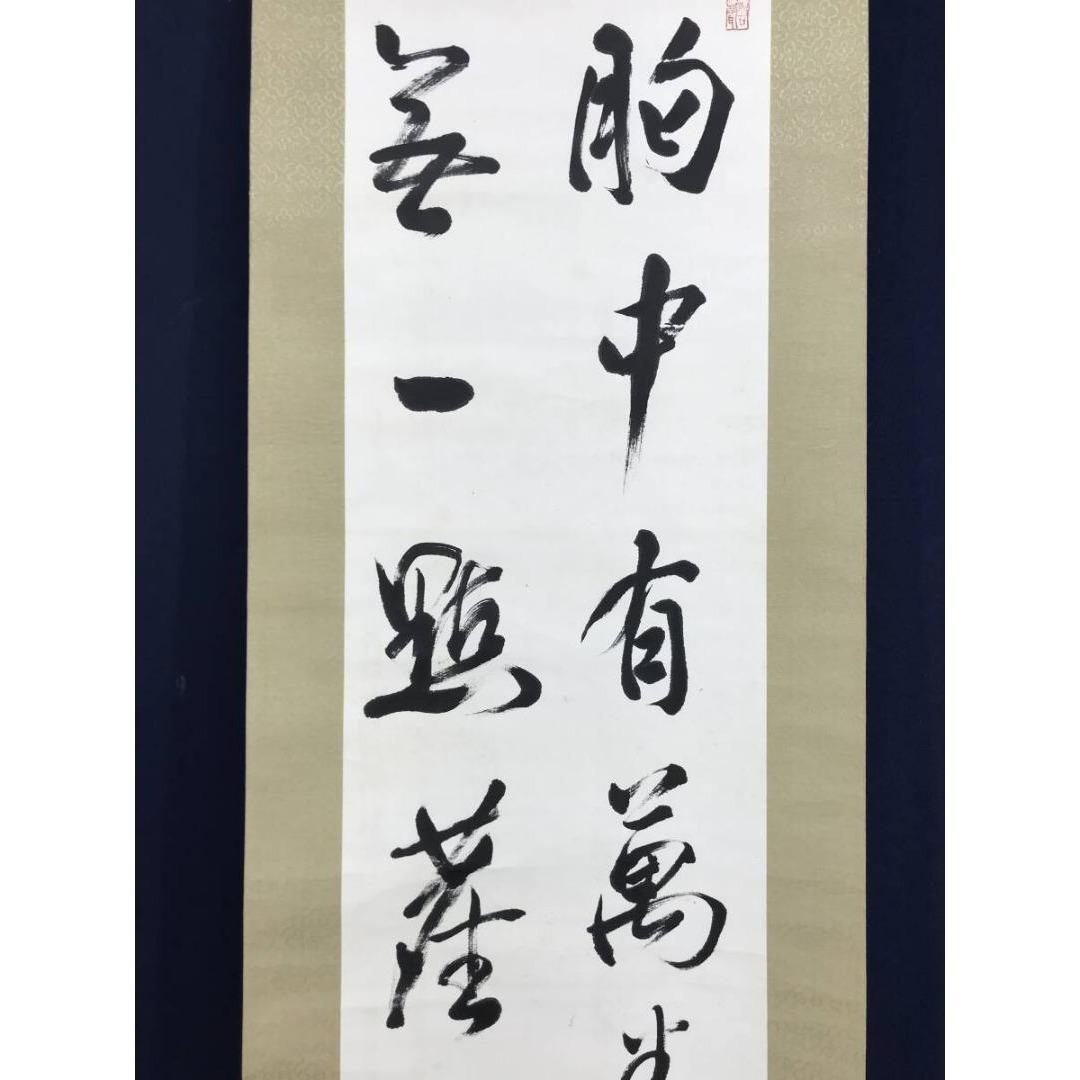 胸中有萬
無一點塵